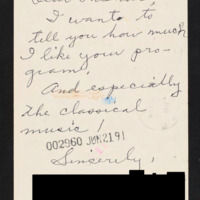 I want to
tell you how much
I like your pro-
gram.
And especially
the classical
music!
002960 JUN 21 91
Sincerely,